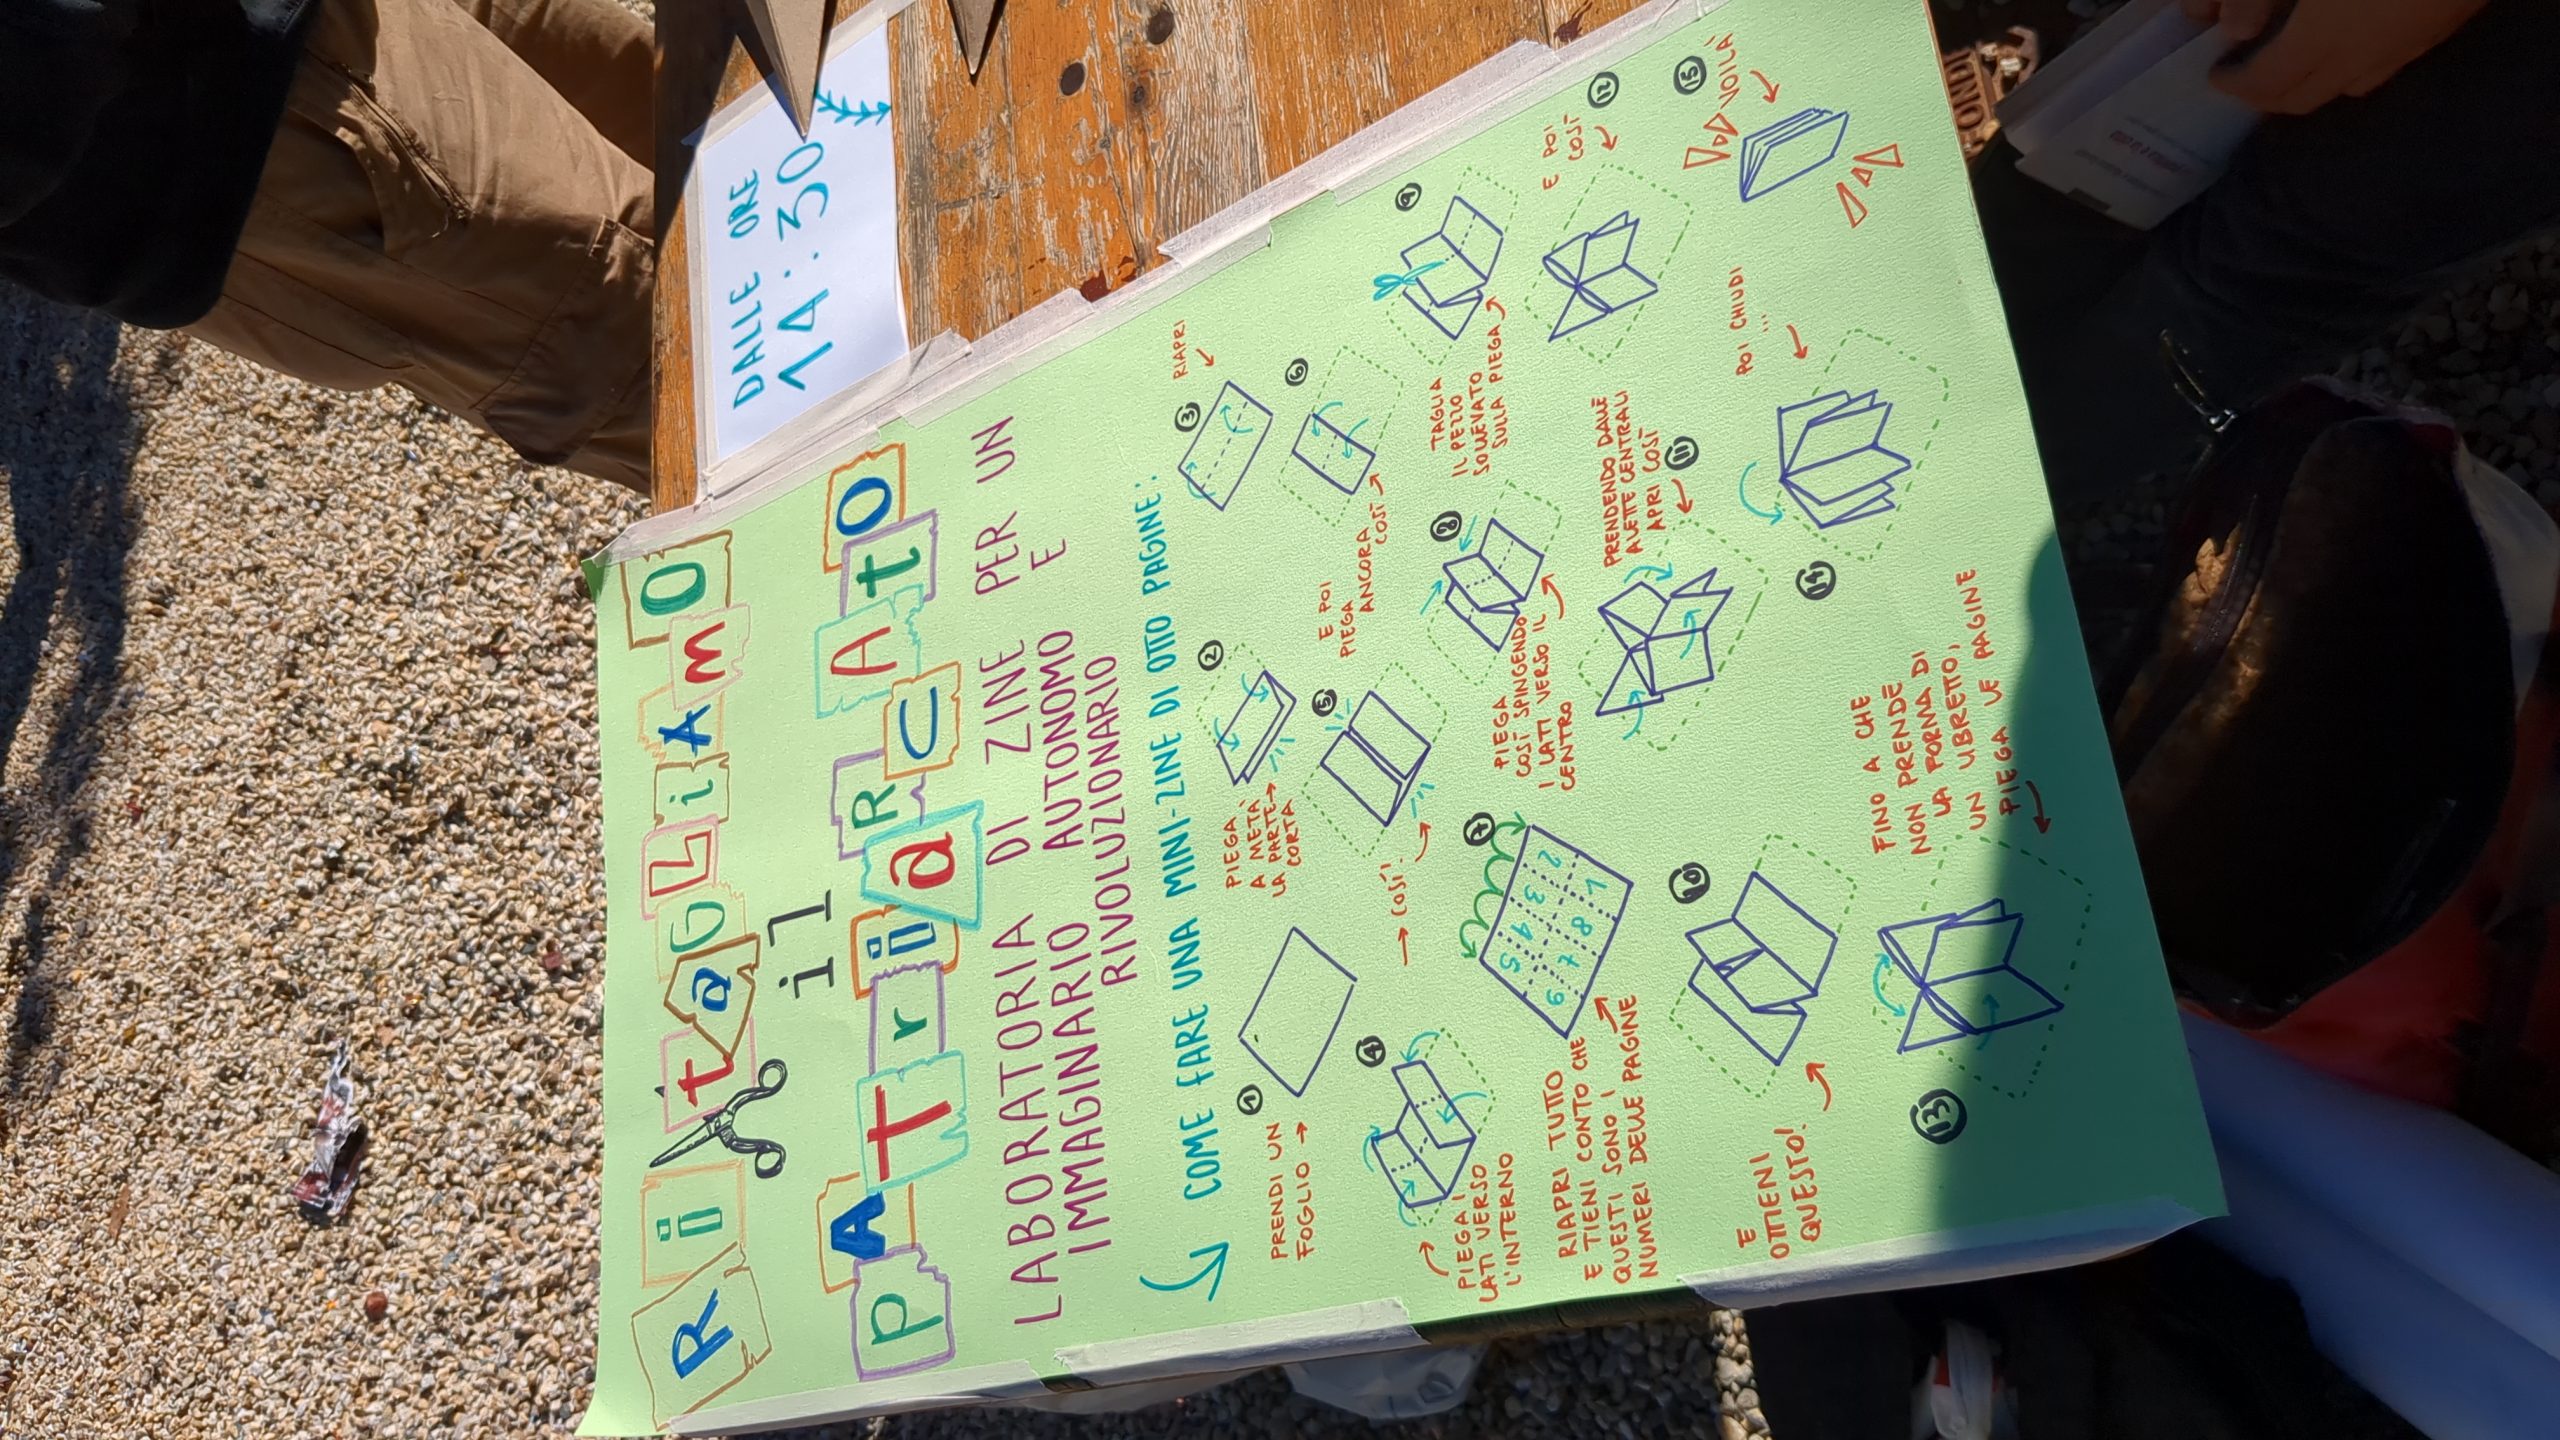 DALLE ORE
14:30
RitaGLiAmO
il
PATriaRCAtO
LABORATORIA DI ZINE PER UN
IMMAGINARIO AUTONOMO E
RIVOLUZIONARIO
COME FARE UNA MINI-ZINE DI OTTO PAGINE:
1
PRENDI UN
FOGLIO
2
PIEGA
A METÀ
LA PARTE
LA CORTA
3
RIAPRI
4
PIEGA I
LATI VERSO
L'INTERNO
5
COSÌ.
6
E POI
PIEGA
ANCORA
COSÌ
7
2 3 4 5
1 8 7 6
RIAPRI TUTTO
E TIENI CONTO CHE
QUESTI SONO I
NUMERI DELLE PAGINE
8
PIEGA
COSÌ SPINGENDO
I LATI VERSO IL
CENTRO
9
TAGLIA
IL PEZZO
SOLLEVATO
SULLA PIEGA
10
E
OTTIENI
QUESTO!
11
PRENDENDO DALLE
ALETTE CENTRALI
APRI COSÌ
12
E POI
COSÌ
13
FINO A CHE
NON PRENDE
LA FORMA DI
UN LIBRETTO,
PIEGA LE PAGINE
14
POI CHIUDI
...
15
VOILÀ
JUNIOR